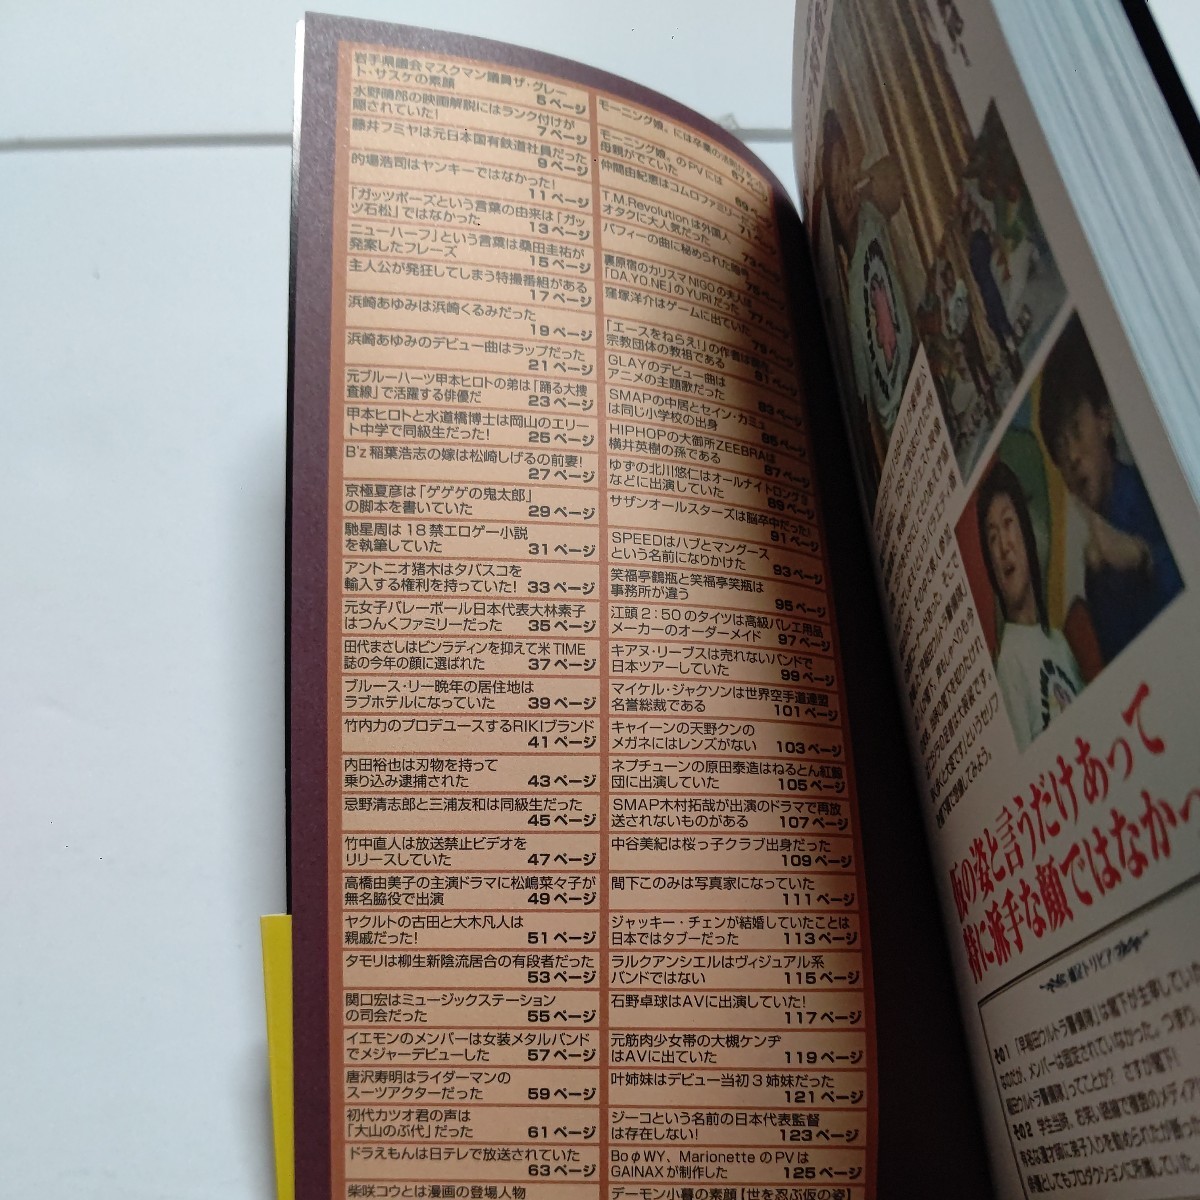 岩手県議会マスクマン議員ザ・グレー
ト・サスケの素顔
5ページ
水野晴郎の映画解説にはランク付けが
隠されていた!
7ページ
藤井フミヤは元日本国有鉄道社員だった
9ページ
的場浩司はヤンキーではなかった!
11ページ
「ガッツポーズという言葉の由来は「ガッ
ツ石松」ではなかった
13ページ
ニューハーフ」という言葉は桑田圭祐が
発案したフレーズ
15ページ
主人公が発狂してしまう特撮番組がある
17ページ
浜崎あゆみは浜崎くるみだった
19ページ
浜崎あゆみのデビュー曲はラップだった
21ページ
元ブルーハーツ甲本ヒロトの弟は「踊る大捜
査線」で活躍する俳優だ
23ページ
甲本ヒロトと水道橋博士は岡山のエリー
ト中学で同級生だった!
25ページ
B'z稲葉浩志の嫁は松崎しげるの前妻!
27ページ
京極夏彦は「ゲゲゲの鬼太郎」
の脚本を書いていた
29ページ
馳星周は18禁エロゲー小説
を執筆していた
31ページ
アントニオ猪木はタバスコを
輸入する権利を持っていた!
33ページ
元女子バレーボール日本代表大林素子
はつんくファミリーだった
35ページ
田代まさしはビンラディンを抑えて米TIME
誌の今年の顔に選ばれた
37ページ
ブルース・リー晩年の居住地は
ラブホテルになっていた
39ページ
竹内力のプロデュースするRIKIブランド
41ページ
内田裕也は刃物を持って
乗り込み逮捕された
43ページ
忌野清志郎と三浦友和は同級生だった
45ページ
竹中直人は放送禁止ビデオを
リリースしていた
47ページ
高橋由美子の主演ドラマに松嶋菜々子が
無名脇役で出演
49ページ
ヤクルトの古田と大木凡人は
親戚だった!
51ページ
タモリは柳生新陰流居合の有段者だった
53ページ
関口宏はミュージックステーション
の司会だった
55ページ
イエモンのメンバーは女装メタルバンド
でメジャーデビューした
57ページ
唐沢寿明はライダーマンの
スーツアクターだった
59ページ
初代カツオ君の声は
「大山のぶ代」だった
61ページ
ドラえもんは日テレで放送されていた
63ページ
柴咲コウとは漫画の登場人物
モーニング娘。には卒業の法則が
67ページ
モーニング娘。のPVには
母親がでていた
69ページ
仲間由紀恵はコムロファミリーだった
71ページ
T.M.Revolutionは外国人
オタクに大人気だった
73ページ
パフィーの曲に秘められた暗号
75ページ
裏原宿のカリスマNIGOの夫人は
「DA.YO.NE」のYURIだった
77ページ
窪塚洋介はゲームに出ていた
79ページ
「エースをねらえ!」の作者は
宗教団体の教祖である
81ページ
GLAYのデビュー曲は
アニメの主題歌だった
83ページ
SMAPの中居とセイン・カミュ
は同じ小学校の出身
85ページ
HIPHOPの大御所ZEEBRAは
横井英樹の孫である
87ページ
ゆずの北川悠仁はオールナイトロング3
などに出演していた
89ページ
サザンオールスターズは脳卒中だった!
91ページ
SPEEDはハブとマングース
という名前になりかけた
93ページ
笑福亭鶴瓶と笑福亭笑瓶は
事務所が違う
95ページ
江頭2:50のタイツは高級バレエ用品
メーカーのオーダーメイド
97ページ
キアヌ・リーブスは売れないバンドで
日本ツアーしていた
99ページ
マイケル・ジャクソンは世界空手道連盟
名誉総裁である
101ページ
キャイーンの天野クンの
メガネにはレンズがない
103ページ
ネプチューンの原田泰造はねるとん紅鯨
団に出演していた
105ページ
SMAP木村拓哉が出演のドラマで再放
送されないものがある
107ページ
中谷美紀は桜っ子クラブ出身だった
109ページ
間下このみは写真家になっていた
111ページ
ジャッキー・チェンが結婚していたことは
日本ではタブーだった
113ページ
ラルクアンシエルはヴィジュアル系
バンドではない
115ページ
石野卓球はAVに出演していた!
117ページ
元筋肉少女帯の大槻ケンヂ
はAVに出ていた
119ページ
叶姉妹はデビュー当初3姉妹だった
121ページ
ジーコという名前の日本代表監督
は存在しない!
123ページ
BoφWY、MarionetteのPVは
GAINAXが制作した
125ページ
デーモン小暮の素顔【世を忍ぶ仮の姿】
仮の姿と言うだけあって
特に派手な顔ではなかっ
その1 「早稲田ウルトラ警備隊」は閣下が主宰していた
なのだが、メンバーは固定されていなかった。つまり、
稲田ウルトラ警備隊」ってことか? さすが閣下!
その2 学生当時、お笑い路線で複数のメディア